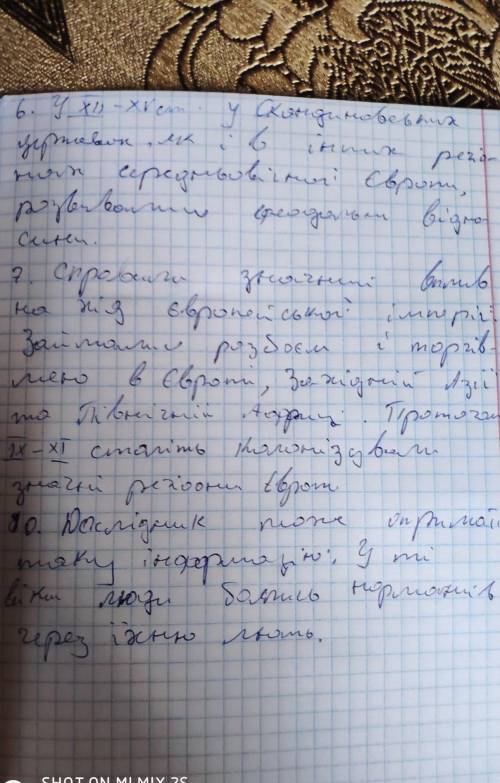 6. У XII-XV ст. у Скандиновських
державах, як і в інших регіо-
нах середньовічної Європи,
розвивались феодальні відно-
сини.
7. Справили значний вплив
на хід європейської імперії
Займались розбоєм і торгів-
лею в Європі, Західній Азії
та Північній Африці. Протягом
IX-XI століть колонізували
значні регіони Європи
10. Дослідник може отримати
таку інформацію: У ті
віки люди боялись норманів
через їхню лють.
SHOT ON MI MIX 2S